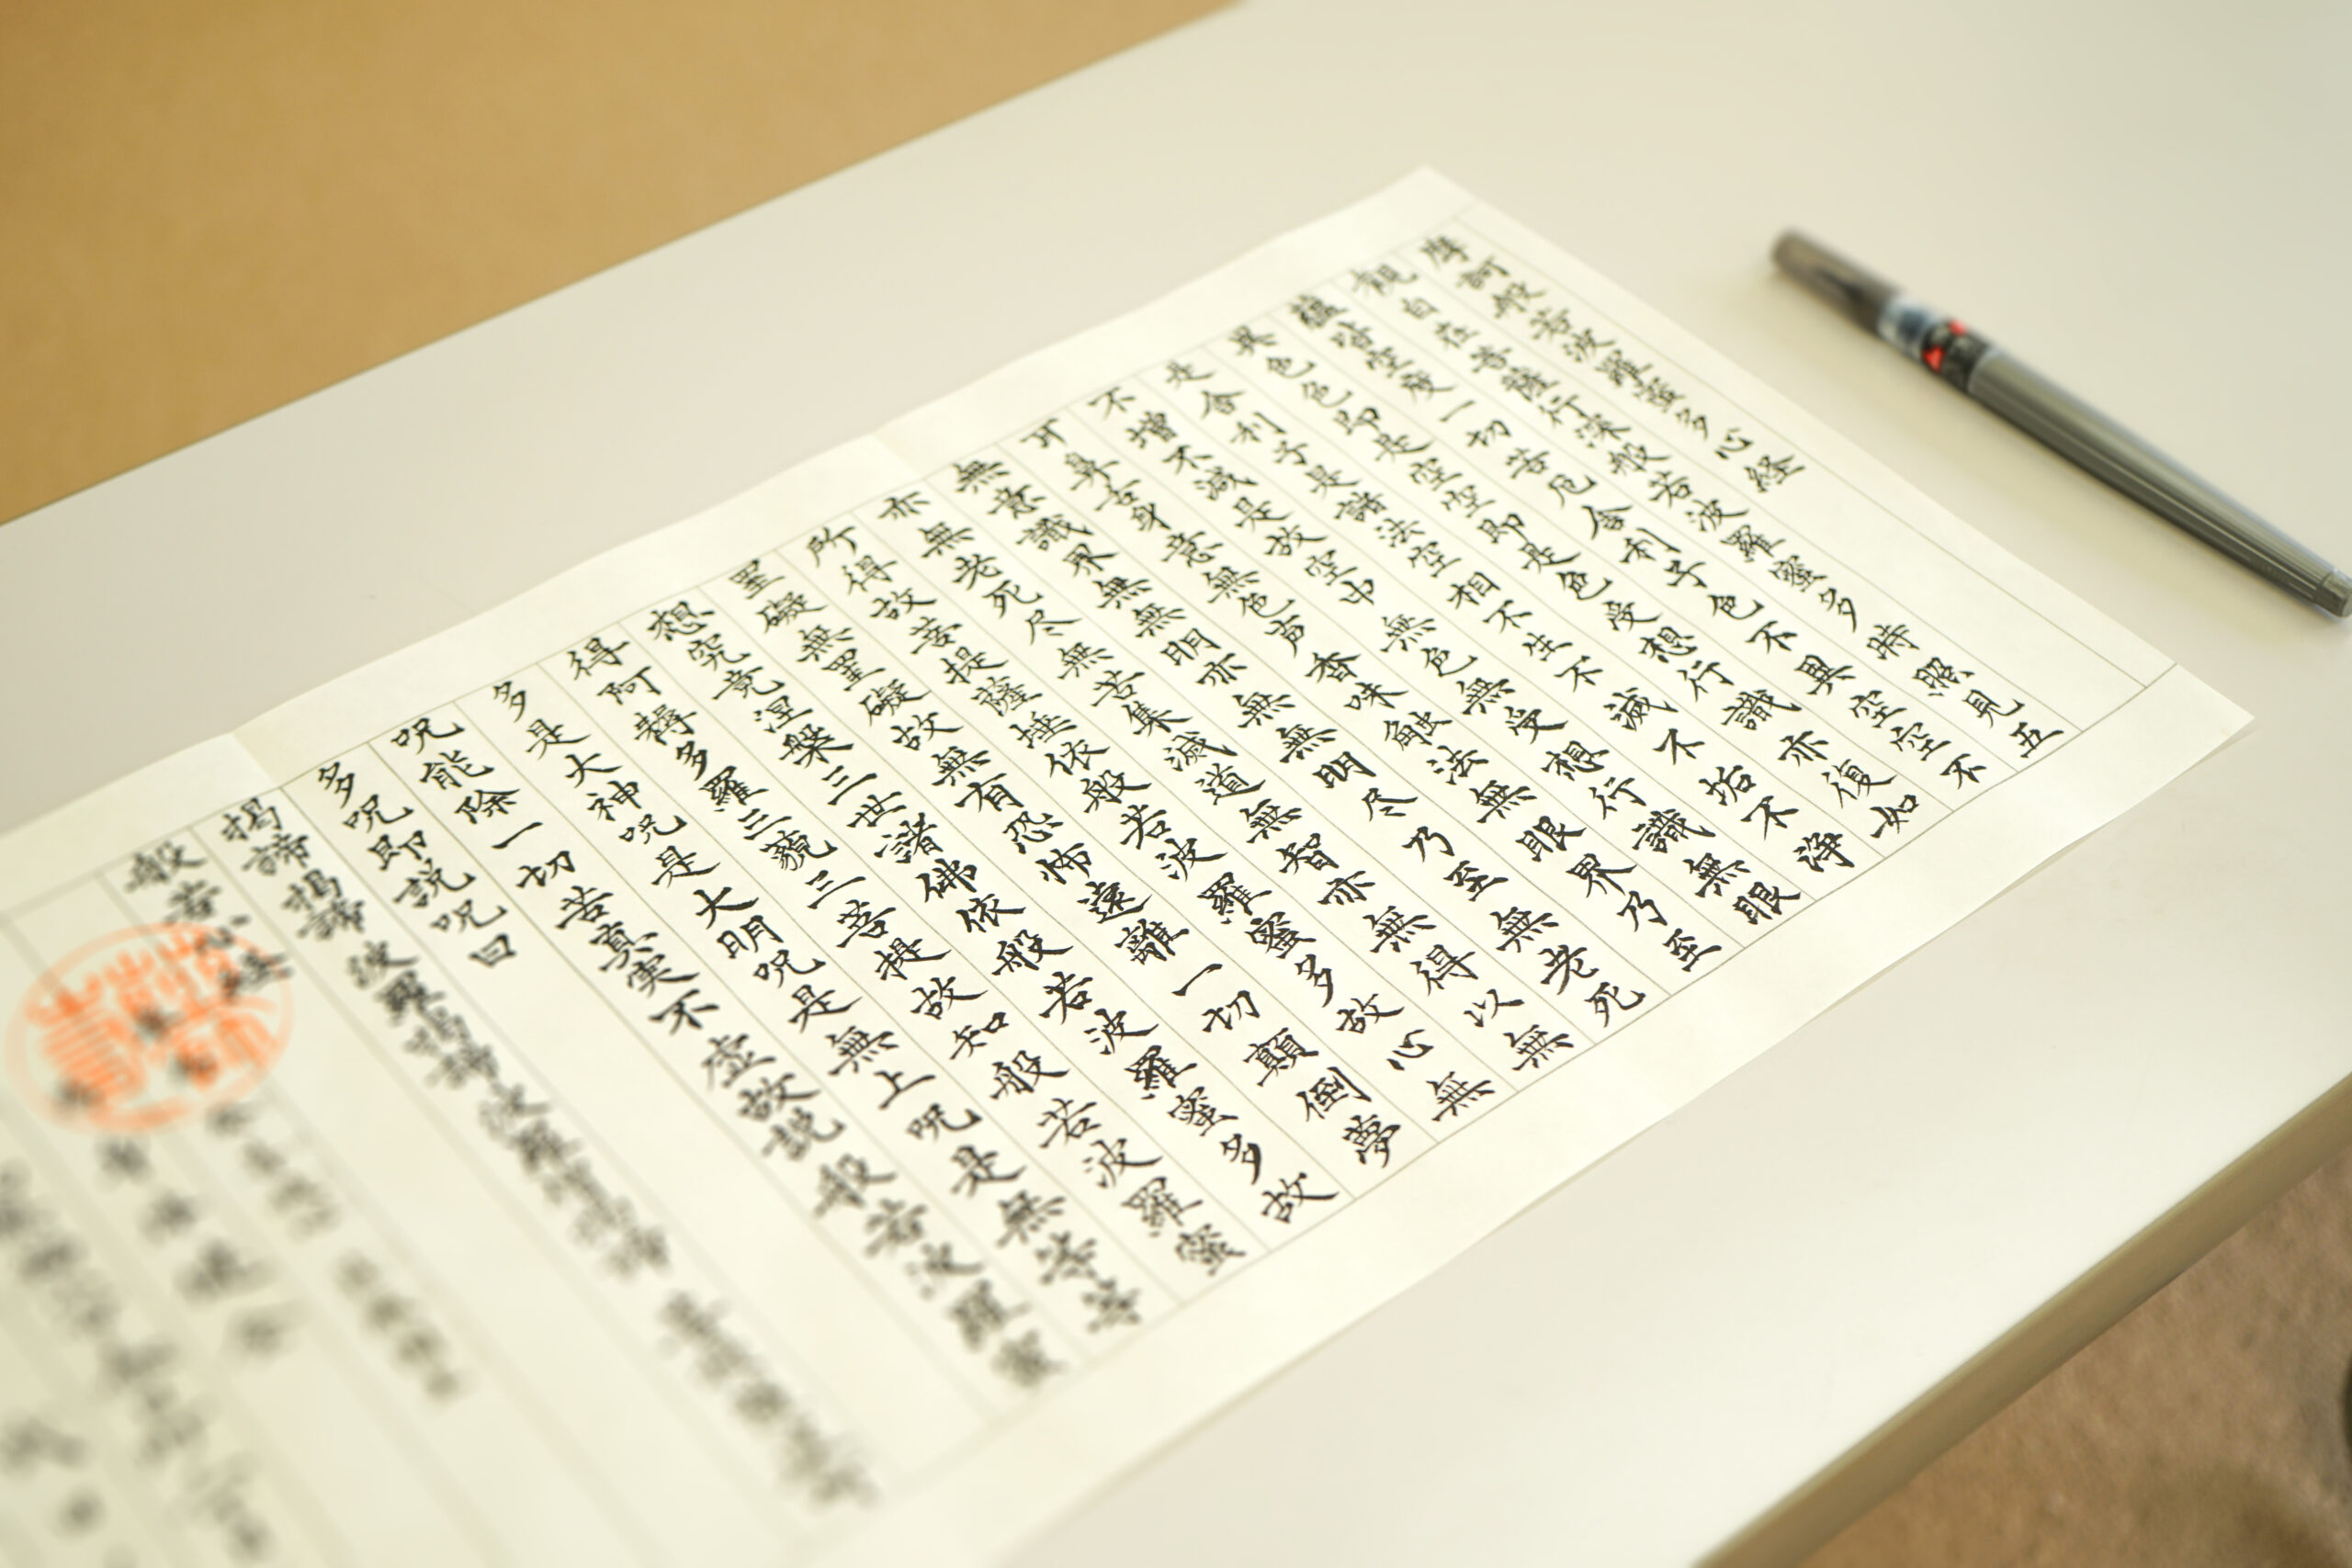 摩訶般若波羅蜜多心経
観自在菩薩行深般若波羅蜜多時照見五
蘊皆空度一切苦厄舎利子色不異空空不
異色色即是空空即是色受想行識亦復如
是舎利子是諸法空相不生不滅不垢不浄
不増不減是故空中無色無受想行識無眼
耳鼻舌身意無色声香味触法無眼界乃至
無意識界無無明亦無無明尽乃至無老死
亦無老死尽無苦集滅道無智亦無得以無
所得故菩提薩埵依般若波羅蜜多故心無
罣礙無罣礙故無有恐怖遠離一切顛倒夢
想究竟涅槃三世諸佛依般若波羅蜜多故
得阿耨多羅三藐三菩提故知般若波羅蜜
多是大神呪是大明呪是無上呪是無等等
呪能除一切苦真実不虚故説般若波羅蜜
多呪即説呪曰
揭諦揭諦 波羅揭諦 波羅
般若心経